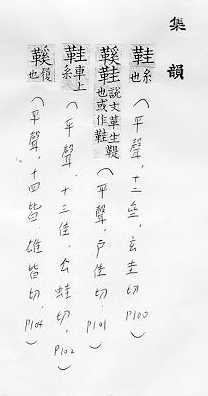 集韻
鞋 糸也 (平聲,十二齊,玄圭切. P100)
鞵鞋 說文革生鞮也或作鞋 (平聲,戶佳切. P101)
鞋 車上糸 (平聲,十三佳,公蛙切. P102)
鞵 履也 (平聲,十四皆,雄皆切. P104)